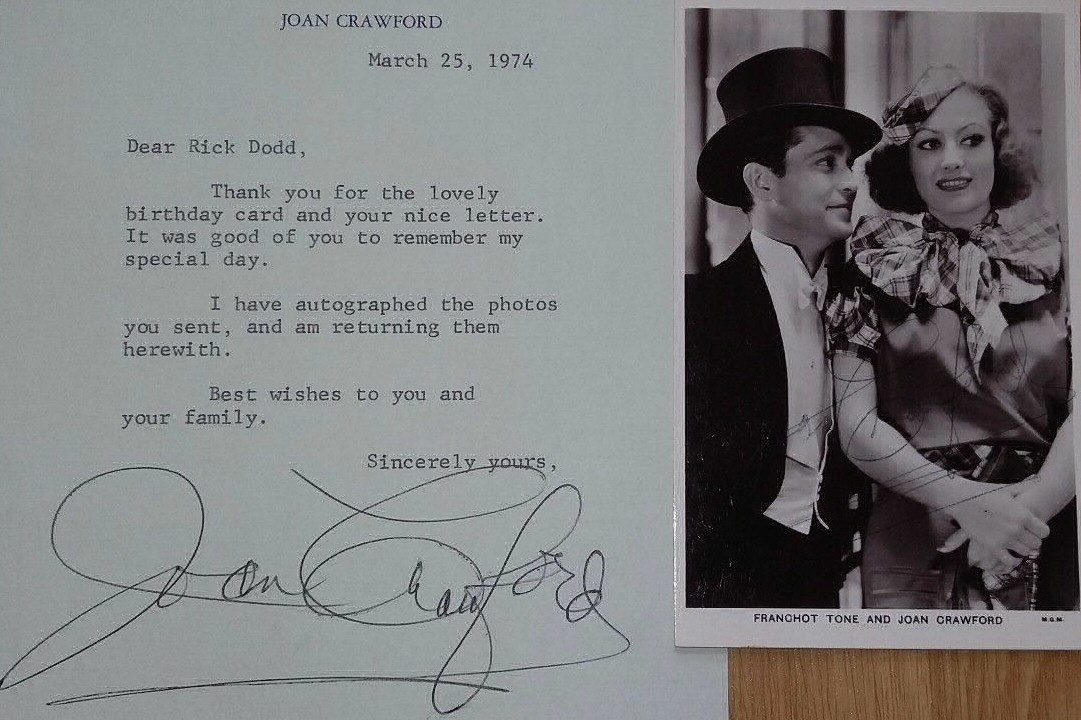 JOAN CRAWFORD
March 25, 1974
Dear Rick Dodd,
Thank you for the lovely
birthday card and your nice letter.
It was good of you to remember my
special day.
I have autographed the photos
you sent, and am returning them
herewith.
Best wishes to you and
your family.
Sincerely yours,
Joan Crawford
FRANCHOT TONE AND JOAN CRAWFORD
M.G.M.